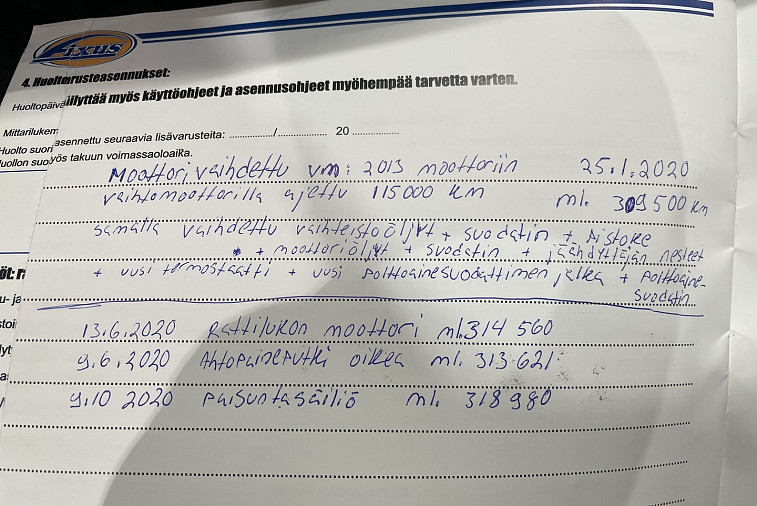 AIXUS
4. Huoltorusteasennukset:
Huoltopäivä
ilyttää myös käyttöohjeet ja asennusohjeet myöhempää tarvetta varten.
Mittarilukem
asennettu seuraavia lisävarusteita: ............../................ 20 ...............
Huolto suori
huollon suo
yös takuun voimassaoloaika.
Moottori vaihdettu vm: 2013 moottoriin 25.1.2020
vaihtomoottorilla ajettu 115000 km ml. 309500 km
samalla vaihdettu vaihteistoöljyt + suodatin + pistoke
+ moottoriöljyt + suodatin + jäähdyttäjän nesteet
+ uusi termostaatti + uusi polttoainesuodattimen jalka + polttoaine-
suodatin
13.6.2020 Rattilukon moottori ml.314 560
9.6.2020 Ahtopaineputki oikea ml. 313 621
9.10 2020 paisuntasäiliö ml. 318 980